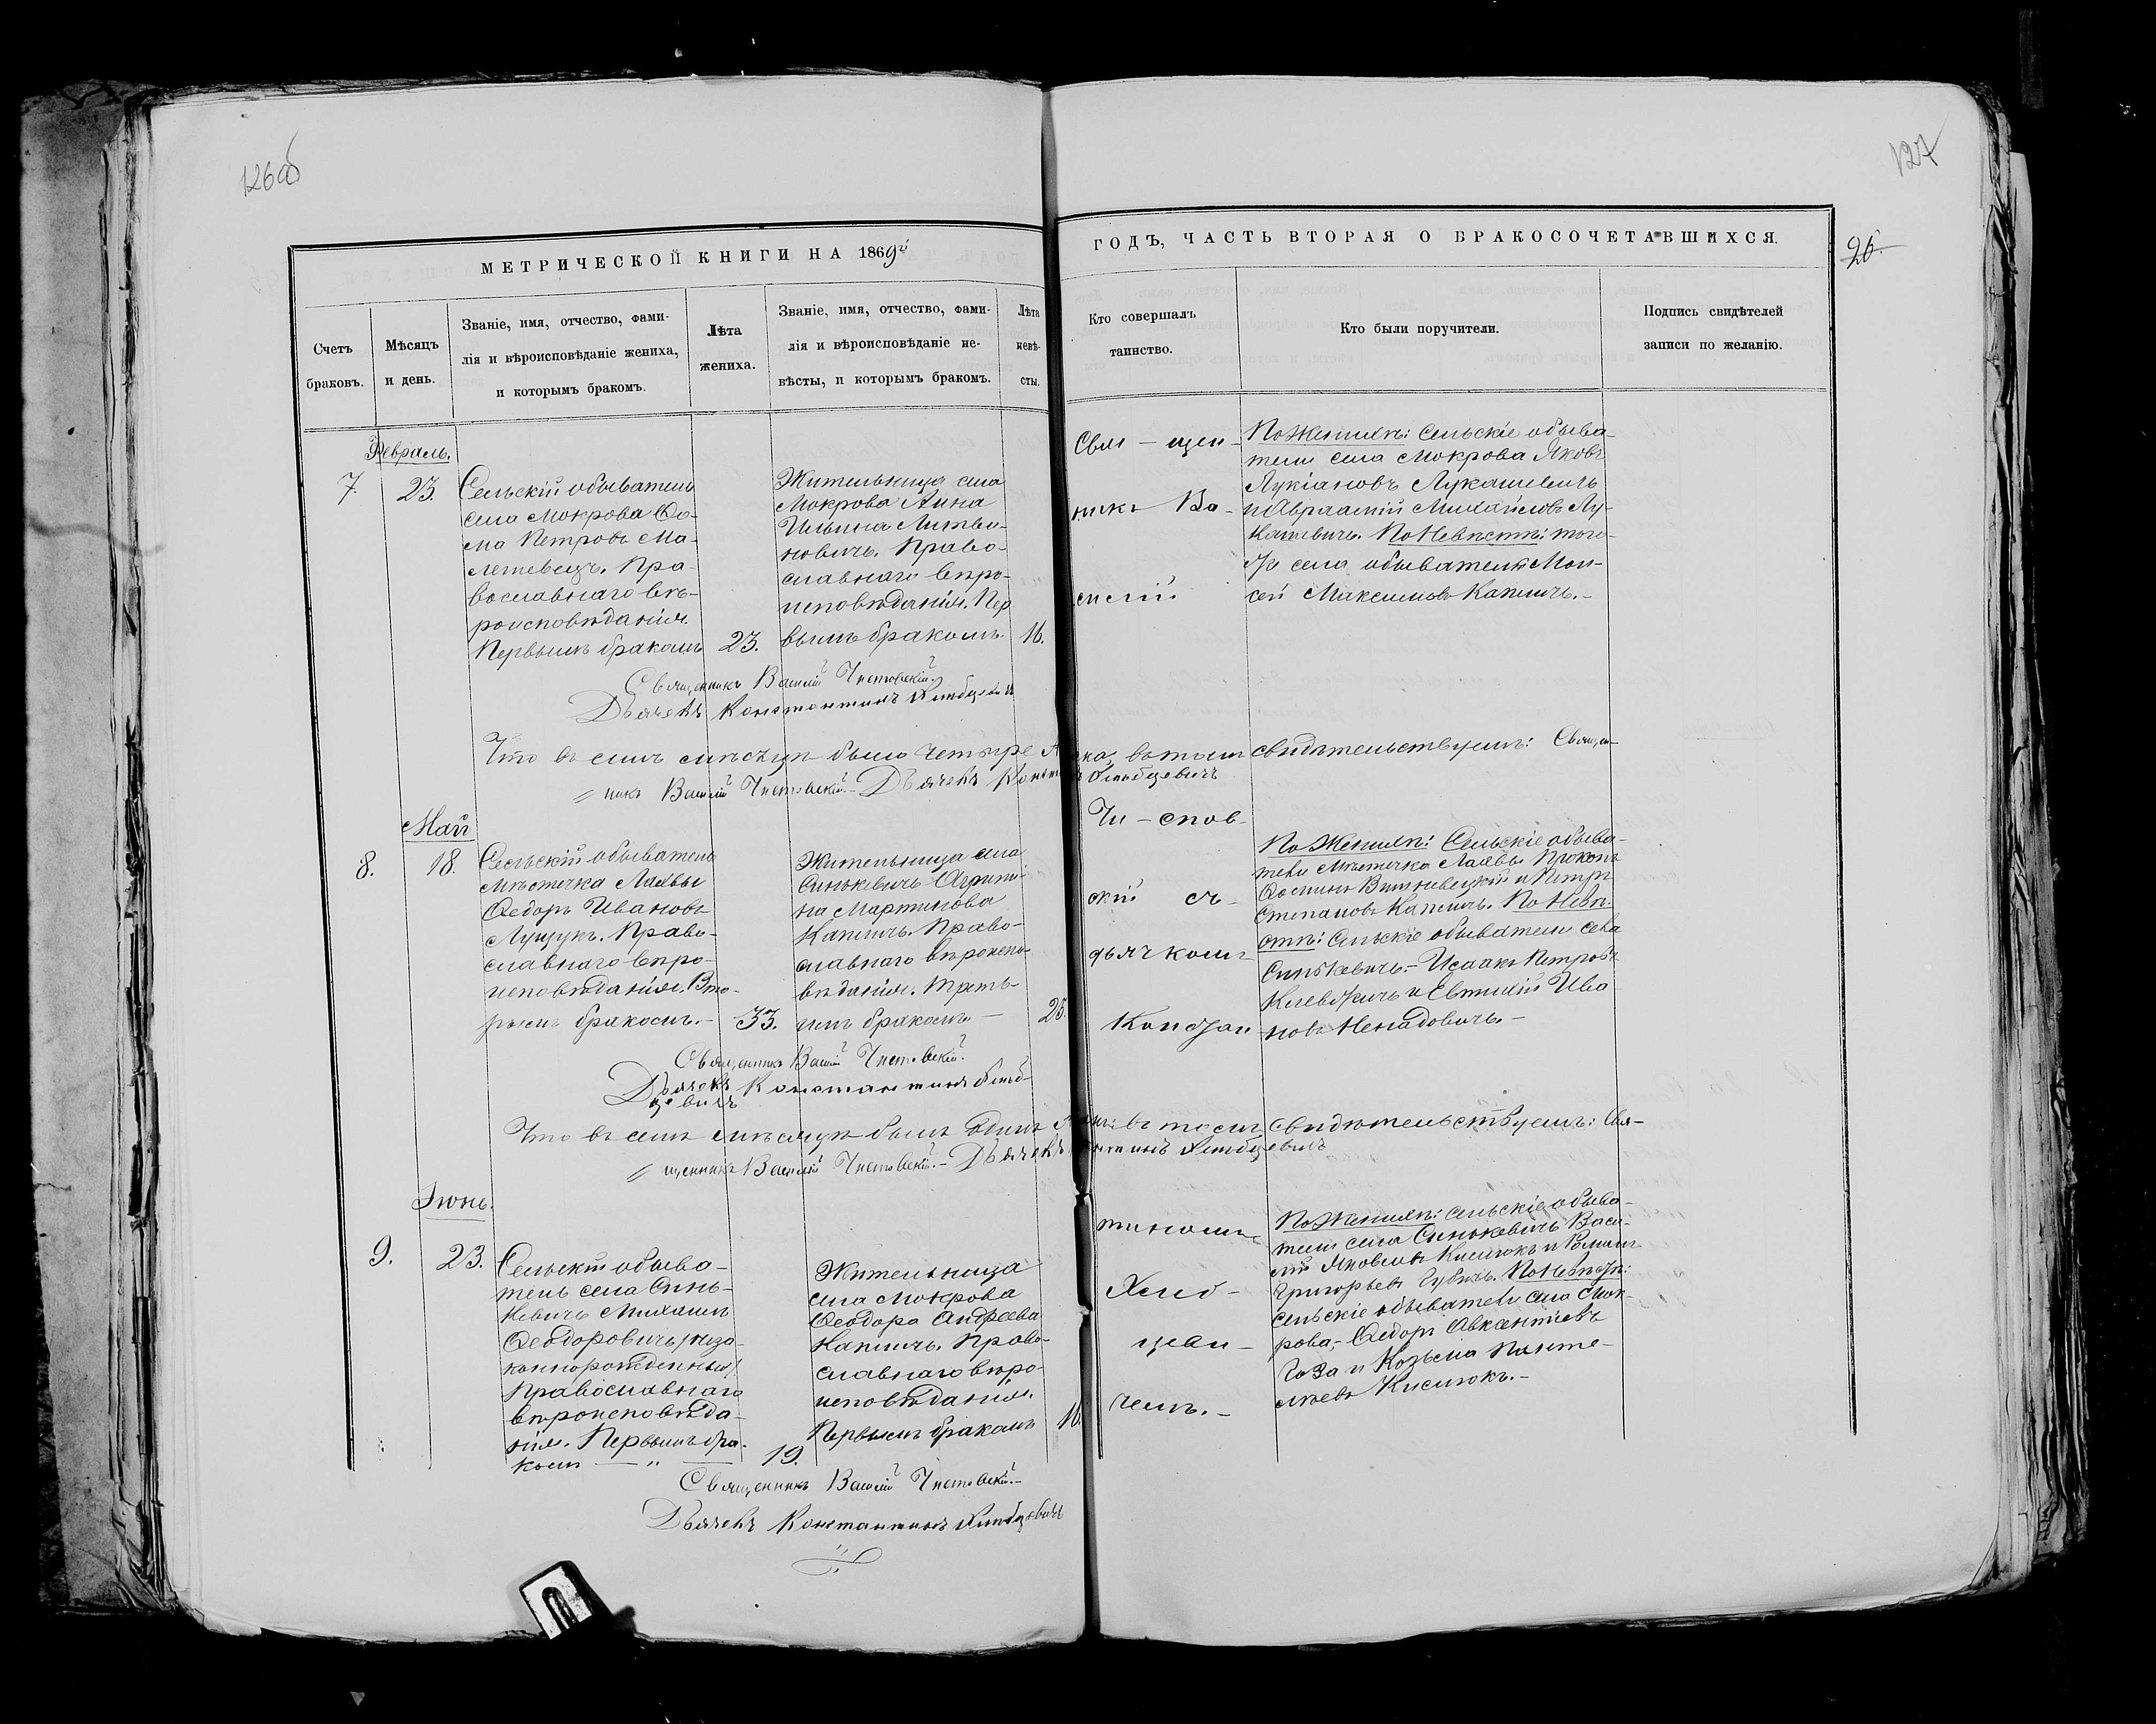 126об
127
МЕТРИЧЕСКОЙ КНИГИ НА 1869й
ГОДЪ, ЧАСТЬ ВТОРАЯ О БРАКОСОЧЕТАВШИХСЯ.
26.
Счетъ
браковъ.
Мѣсяцъ
и день.
Званіе, имя, отчество, фами-
лія и вѣроисповѣданіе жениха,
и которымъ бракомъ.
Лѣта
жениха.
Званіе, имя, отчество, фами-
лія и вѣроисповѣданіе не-
вѣсты, и которымъ бракомъ.
Лѣта
невѣ-
сты.
Кто совершалъ
таинство.
Кто были поручители.
Подпись свидѣтелей
записи по желанію.
Февраль.
7.
23.
Сельскій обыватель
села Мокрова Ѳо-
ма Петровъ Ма-
летевецъ. Пра-
вославнаго вѣ-
роисповѣданія
Первымъ бракомъ
23.
Жительница села
Мокрова Анна
Ильина Литви-
новичъ. Право-
славнаго вѣро-
исповѣданія. Пер
вымъ бракомъ.
16.
Свя-щен-
никъ Ва-
силій
По Женихѣ: Сельскіе обыва-
тели села Мокрова Яковъ
Лукіановъ Лукашевичъ
и Авраамій Михайловъ Лу-
кашевичъ. По Невѣстѣ: того-
же села обыватель Мои-
сей Максимовъ Капичъ.-
Священникъ Василій Чистовскій.
Дьячекъ Константинъ Хлибцевичъ
Что въ семъ мѣсяцѣ было четыре въ томъ свидѣтельствуемъ: Священ-
никъ Василій Чистовскій.- Дьячекъ Хлибцевичъ
Май
8.
18.
Сельскій обыватель
мѣстечка Лахвы
Ѳедоръ Ивановъ
Лущукъ. Право-
славнаго вѣро-
исповѣданія. Вто-
рымъ бракомъ.-
33.
Жительница села
Синкевичъ Агрипи-
на Мартинова
Капичъ. Право-
славнаго вѣроиспо-
вѣданія. Треть-
имъ бракомъ.-
25.
Чи-стов-
скій съ-
дьячкомъ
Констан-
По Женихѣ: Сельскіе обыва-
тели мѣстечка Лахвы Прокопъ
Ѳоминъ Вишневецкій и Петръ
Степановъ Капичъ. По Невѣ-
стѣ: Сельскіе обыватели села
Синкевичъ.- Исаакъ Петровъ
и Евтихій Ива-
новъ Ненадовичъ.-
Священникъ Василій Чистовскій.
Дьячекъ Константинъ Хлиб-
цевичъ
Что въ семъ мѣсяцѣ былъ одинъ въ томъ свидѣтельствуемъ: Свя-
щенникъ Василій Чистовскій.- Дьячекъ Хлибцевичъ
Іюнь.
9.
23.
Сельскій обыва-
тель села Синь-
кевичъ Михаилъ
Ѳеодоровичъ /неза-
коннорожденный/.
Православнаго
вѣроисповѣда-
нія. Первымъ бра-
комъ — " —
19.
Жительница
села Мокрова
Ѳеодора Андреева
Капичъ. Право-
славнаго вѣро-
исповѣданія.
Первымъ бракомъ
тиномъ
Хлиб-
цеви-
чемъ.-
По Женихѣ: Сельскіе обыва-
тели села Синькевичъ Васи-
лій Яковлевъ Кисилюкъ и Романъ
Григорьевъ Губичъ. По Невѣстѣ:
Сельскіе обыватели села Мок-
рова,- Ѳедоръ Авксентіевъ
и Козьма Панте-
лѣевъ Кисилюкъ.-
Священникъ Василій Чистовскій.-
Дьячекъ Константинъ Хлибцевичъ